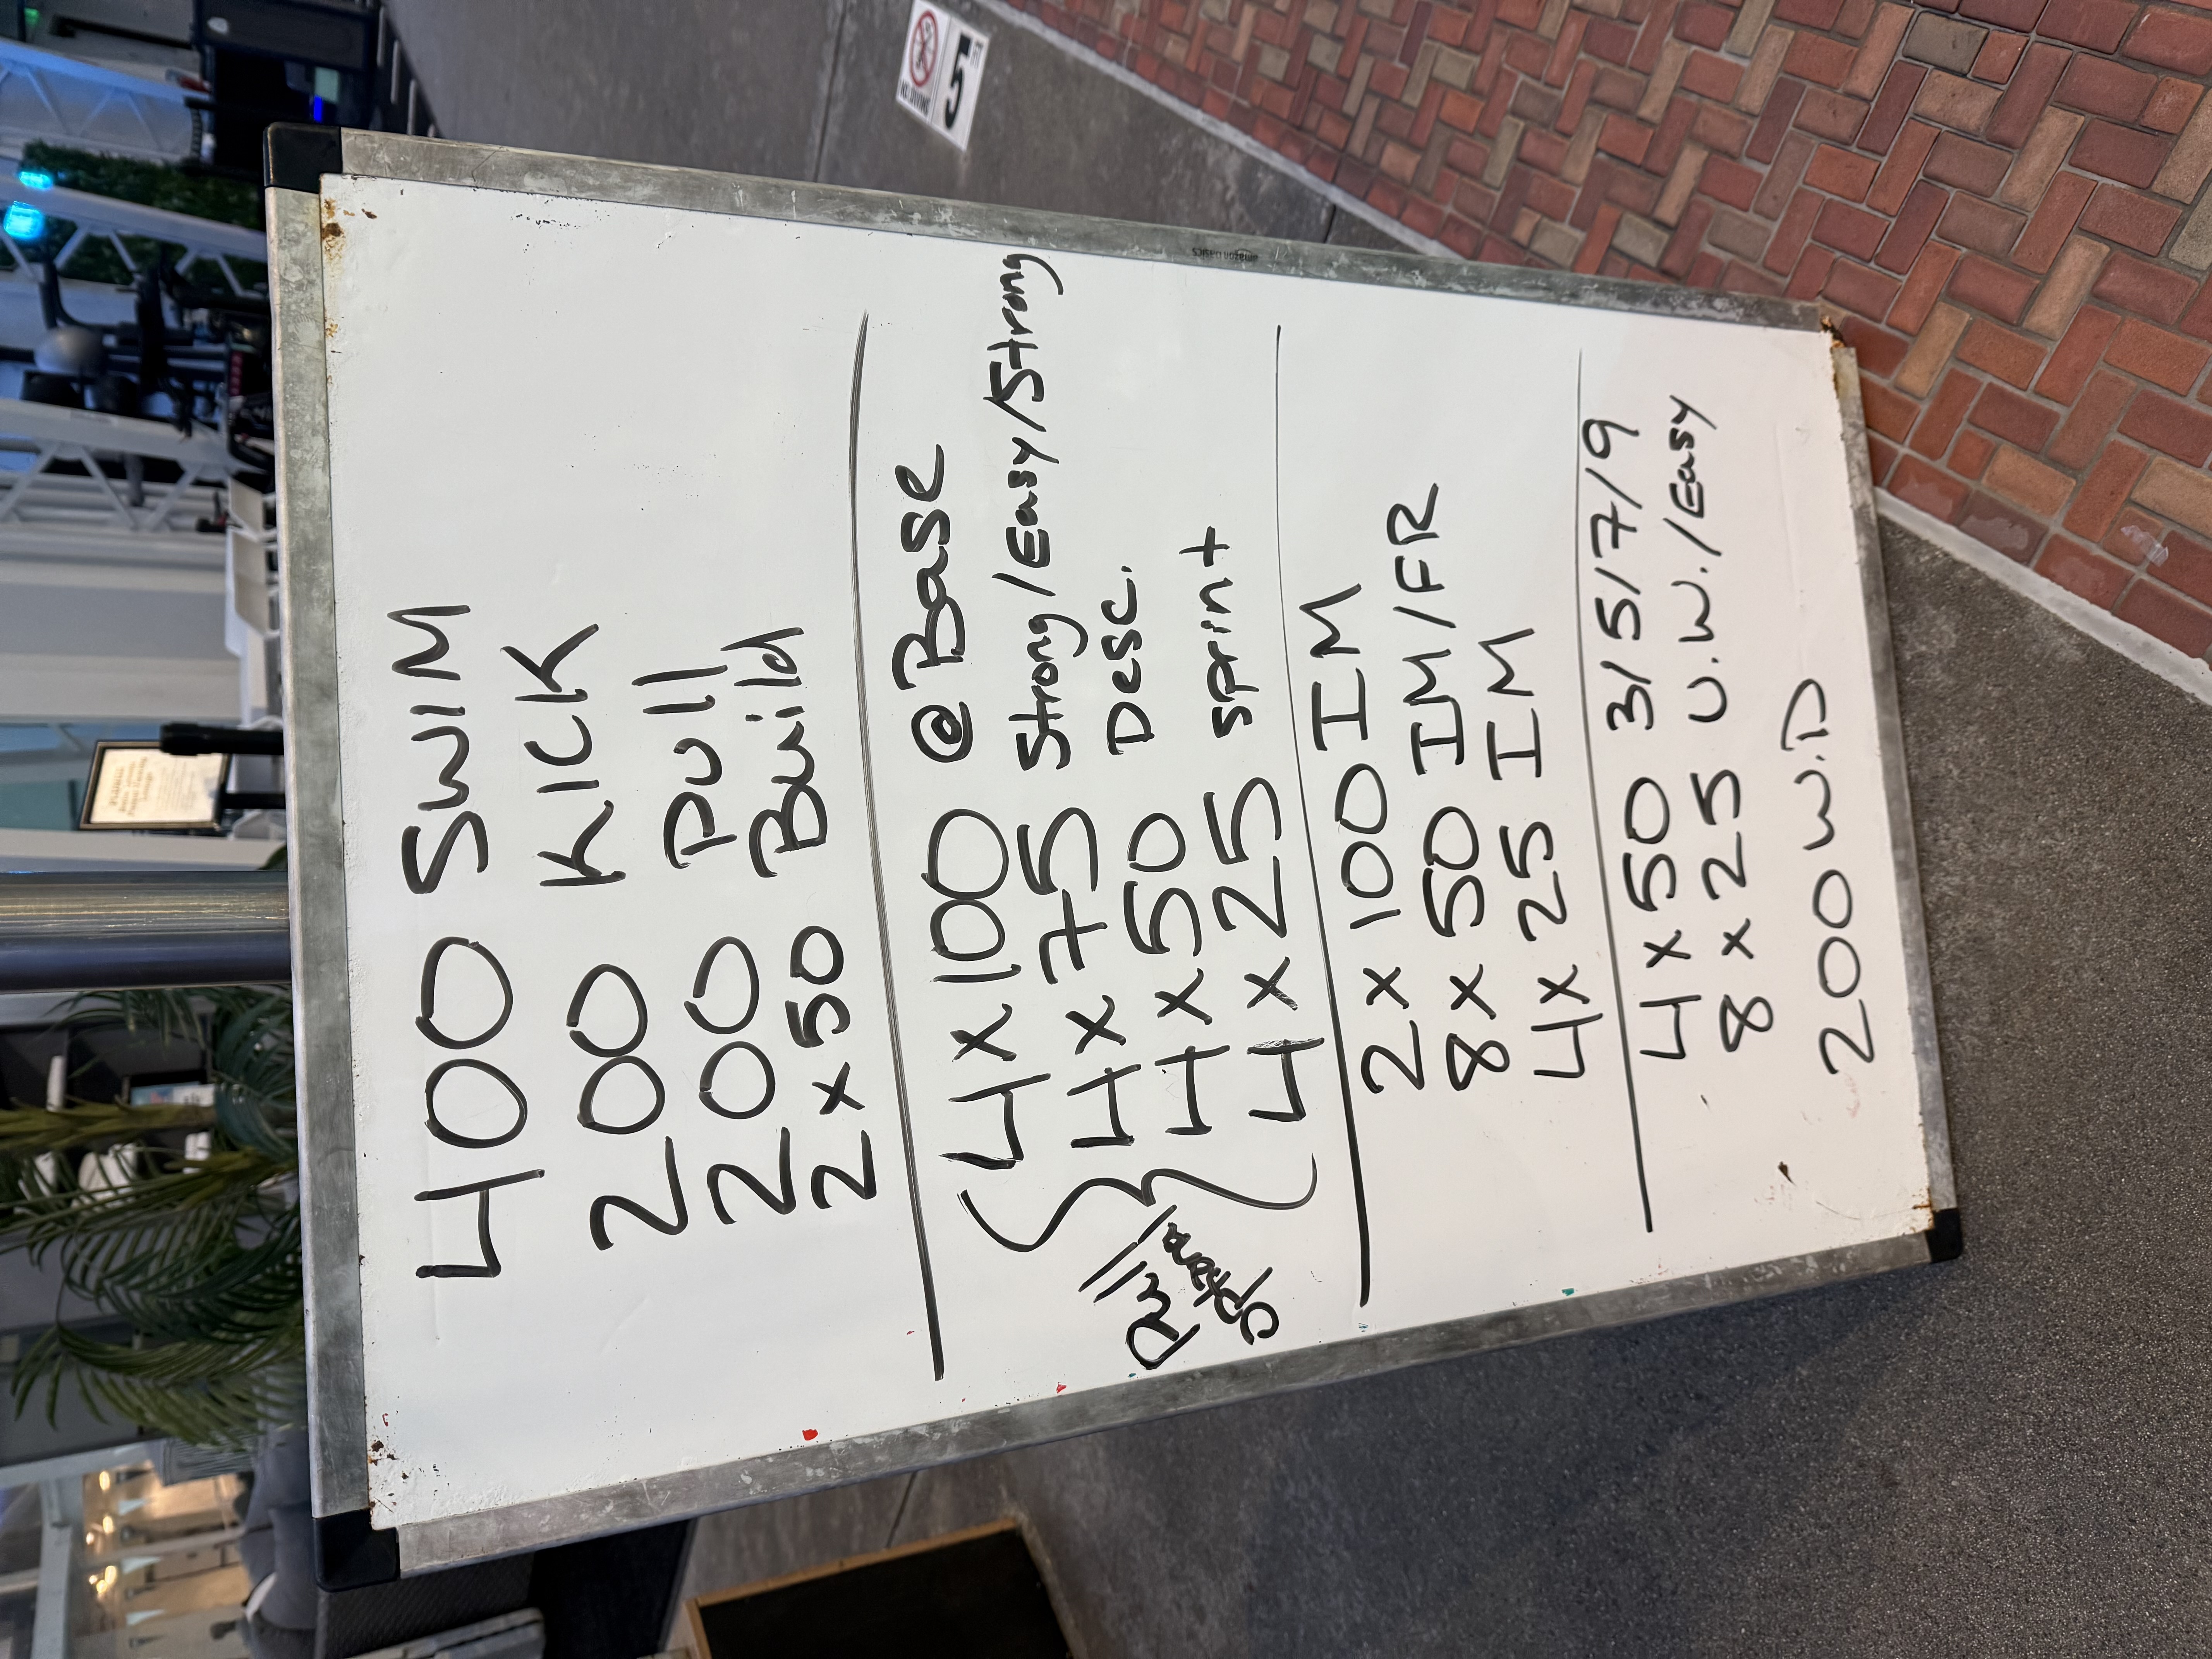 400 SWIM
200 KICK
200 Pull
2 x 50 Build
4 x 100 @ Base
4 x 75 Strong/Easy/Strong
4 x 50 Desc.
4 x 25 sprint
Pull
2 x 100 IM
8 x 50 IM/FR
4 x 25 IM
4 x 50 3/5/7/9
8 x 25 U.W./Easy
200 W.D
amazon basics
NO DIVING
5 FT